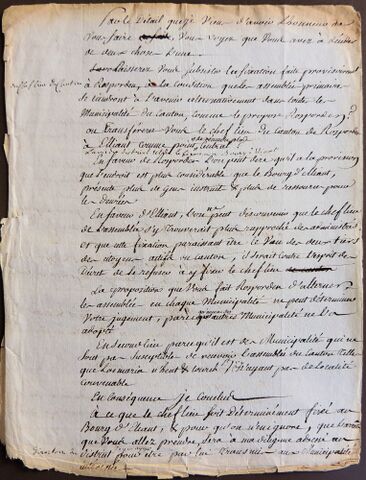 Par le Détail que je Viens d'avoir L'honneur de
Vous faire, Vous Voyez que Vous avez à décider
de deux choses L'une
Laisserez Vous Subsister la fixation faite provisoirement
à Rosporden, à la Condition que les assemblées primaires
se tiendront à L'avenir alternativement dans toutes les
Municipalités du Canton, comme le propose Rosporden ?
ou Transférerez Vous le chef lieu du Canton de Rosporden
à Elliant comme point central
En faveur de Rosporden L'on peut dire qu'il a la provision
que L'endroit est plus considerable que le Bourg d'Elliant,
présente plus de Gens instruits & plus de ressources pour
le
En faveur d'Elliant, L'on ne peut disconvenir que le chef lieu
de L'assemblée s'y trouverait plus rapproché des administrés
et que cette fixation paraissant être le Vœu de deux tiers
des citoyens actifs du canton, il serait contre L'esprit de
de la refuser à y fixer le chef lieu
La proposition que Vous fait Rosporden d'alterner
les assemblées en chaque Municipalité ne peut déterminer
Votre jugement, parce que autres Municipalités ne L'ont
adopté
En Second Lieu parce qu'il est des Municipalités qui ne
sont pas Susceptibles de recevoir L'assemblée du Canton telles
que Locmaria n'étant & tourch n'ayant pas de Localité
convenable
En Conséquence je Conclus
À ce que le chef lieu soit Déterminément fixé au
Bourg d'Elliant, & pour qu'on n'en ignore, que
que Vous allez prendre, sera à ma diligence adressé au
district pour être par lui transmis aux Municipalités